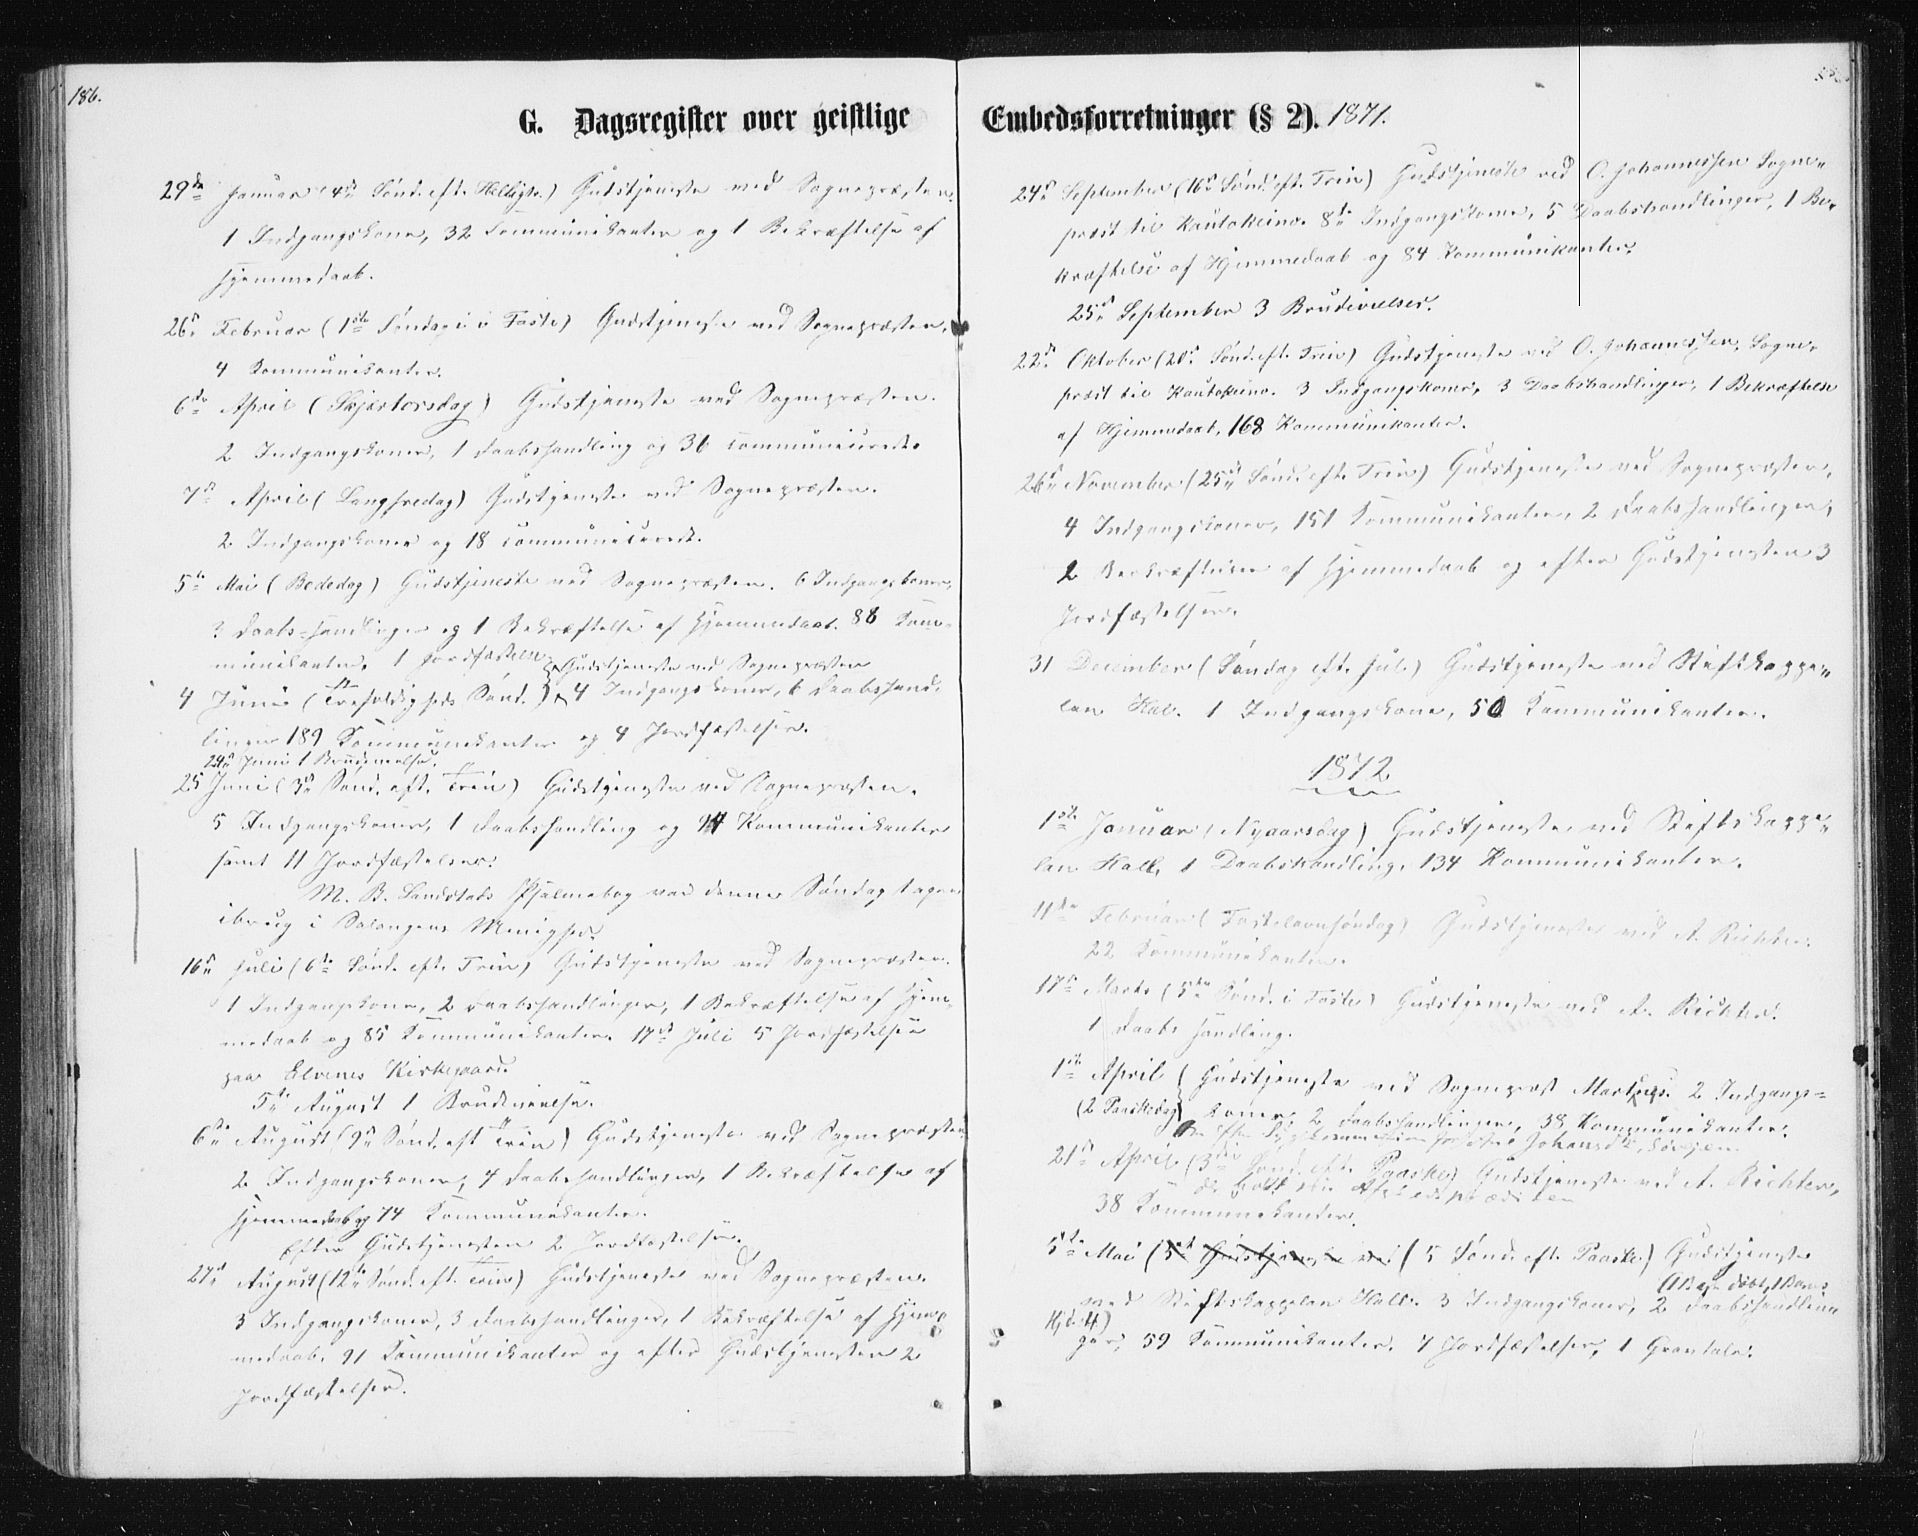 186.
G. Dagsregister over geistlige Embedsforretninger (§ 2). 1871.
29de Januar (4de Sønd. eft. Helligtr.) Gudstjeneste ved Sognepræsten.
1 Indgangskone, 32 Communikanter og 1 Bekræftelse af
Hjemmedaab.
26de Februar (1ste Søndag i Faste) Gudstjeneste ved Sognepræsten.
4 Kommunikanter.
6te April (Skjærtorsdag) Gudstjeneste ved Sognepræsten.
2 Indgangskoner, 1 Daabshandling og 36 communicerede.
7de April (Langfredag) Gudstjeneste ved Sognepræsten.
2 Indgangskoner og 18 communicerede.
5te Mai (Bededag) Gudstjeneste ved Sognepræsten. 6 Indgangskoner,
3 Daabs-handlinger og 1 Bekræftelse af Hjemmedaab. 88 Kom-
munikanter, 1 Jordfæstelse
Gudstjeneste ved Sognepræsten
4 Juni (Trefoldigheds Sønd.) 4 Indgangskoner, 6 Daabshand-
linger 189 Kommunikanter og 4 Jordfæstelser.
24de Juni 1 Brudevielse.
25 Juni (3de Sønd. eft. Trin) Gudstjeneste ved Sognepræsten.
5 Indgangskoner, 1 Daabshandling og 94 Kommunikanter
samt 11 Jordfæstelser.
M. B. Landstads Psalmebog var denne Søndag tagen
ibrug i Salangens Menighed.
16de Juli (6te Sønd. eft. Trin) Gudstjeneste ved Sognepræsten.
1 Indgangskone, 2 Daabshandlinger, 1 Bekræftelse af Hjem-
medaab og 85 Kommunikanter. 17de Juli 5 Jordfæstelser
paa Elvenes Kirkegaard.
5te August 1 Brudevielse.
6te August (9de Sønd. eft Trin) Gudstjeneste ved Sognepræsten
2 Indgangskoner, 4 Daabshandlinger, 1 Bekræftelse af
Hjemmedaab og 74 Kommunikanter.
Efter Gudstjenesten 2 Jordfæstelser.
27de August (12te Sønd. eft. Trin) Gudstjeneste ved Sognepræsten.
3 Indgangskoner, 3 Daabshandlinger, 1 Bekræftelse af Hjem-
medaab, 91 Kommunikanter og efter Gudstjenesten 2
Jordfæstelser.
24de September (16de Sønd. eft. Trin) Gudstjeneste ved O. Johannessen Sogne-
præst til Kautokeino. 8te Indgangskone, 5 Daabshandlinger, 1 Be-
kræftelse af Hjemmedaab og 84 Kommunikanter.
25de September 3 Brudevielser.
22de Oktober (20de Sønd. eft. Trin) Gudstjeneste ved O. Johannessen, Sogne-
præst til Kautokeino. 3 Indgangskoner, 3 Daabshandlinger, 1 Bekræftelse
af Hjemmedaab, 168 Kommunikanter.
26de November (25de Sønd. eft. Trin) Gudstjeneste ved Sognepræsten,
4 Indgangskoner, 151 Kommunikanter, 2 Daabshandlinger,
2 Bekræftelser af Hjemmedaab og efter Gudstjenesten 3
Jordfæstelser.
31 December (Søndag eft. Jul.) Gudstjeneste ved Stiftskappe-
lan Hall. 1 Indgangskone, 50 Kommunikanter.
1872
1ste Januar (Nyaarsdag) Gudstjeneste ved Stiftskappe-
lan Hall, 1 Daabshandling, 134 Kommunikanter.
11te Februar (Fastelavnsøndag) Gudstjeneste ved A. Richter.
22 Kommunikanter.
17de Marts (5te Sønd. i Faste) Gudstjeneste ved A. Richter.
1 Daabshandling.
1ste April (Gudstjeneste ved Sognepræst 2 Indgangs-
(2 Paaskedag) koner, 2 Daabshandlinger, 38 Kommunikanter.
21de April (3die Sønd. eft. Paaske) Gudstjeneste ved A. Richter,
38 Kommunikanter.
5te Mai (5 Sønd. eft. Paaske) Gudstjeneste
ved Stiftskappelan Hall. 3 Indgangskoner, 2 Daabshandlin-
ger, 59 Kommunikanter. 4 Jordfæstelser, 1 Gravtale.